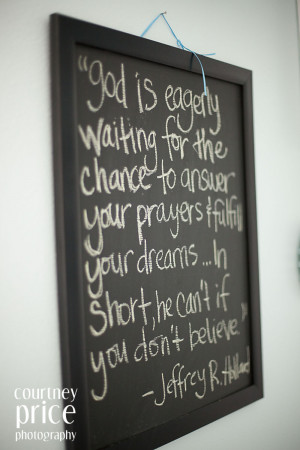 "god is eagerly
waiting for the
chance to answer
your prayers & fulfill
your dreams...In
short, he can't if
you don't believe."
-Jeffrey R. Holland
courtney
price
photography